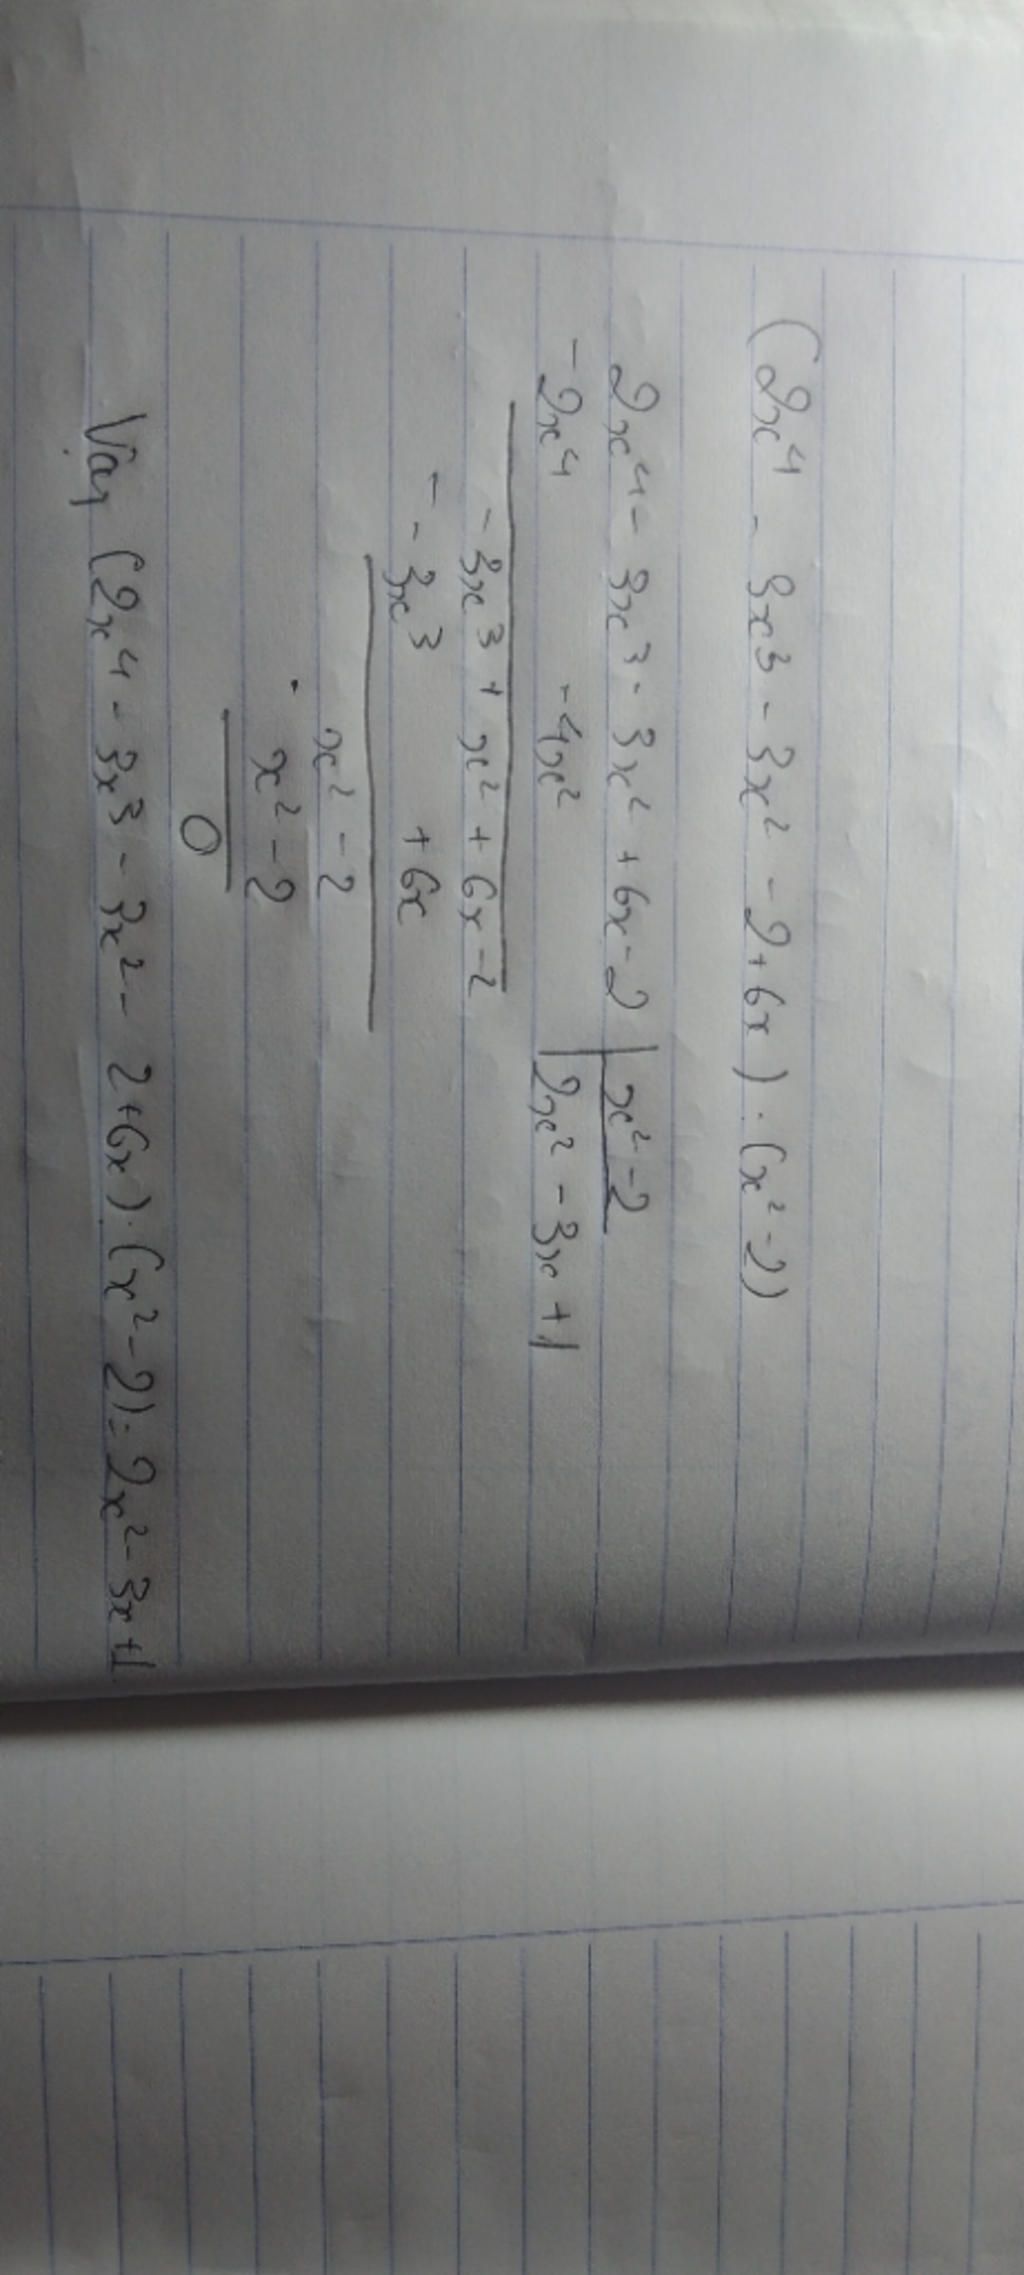 (2x⁴ - 3x³ - 3x² - 2 + 6x) : (x² - 2)
2x⁴ - 3x³ - 3x² + 6x - 2 | x² - 2
- 2x⁴ - 4x² | 2x² - 3x + 1
- 3x³ + x² + 6x - 2
- - 3x³ + 6x
x² - 2
- x² - 2
0
Vậy (2x⁴ - 3x³ - 3x² - 2 + 6x) : (x² - 2) = 2x² - 3x + 1